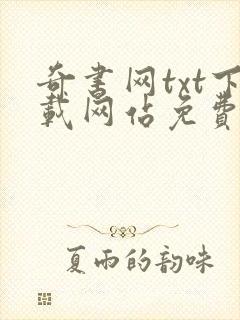 奇书网txt下
载网佔免费
夏雨的韵味